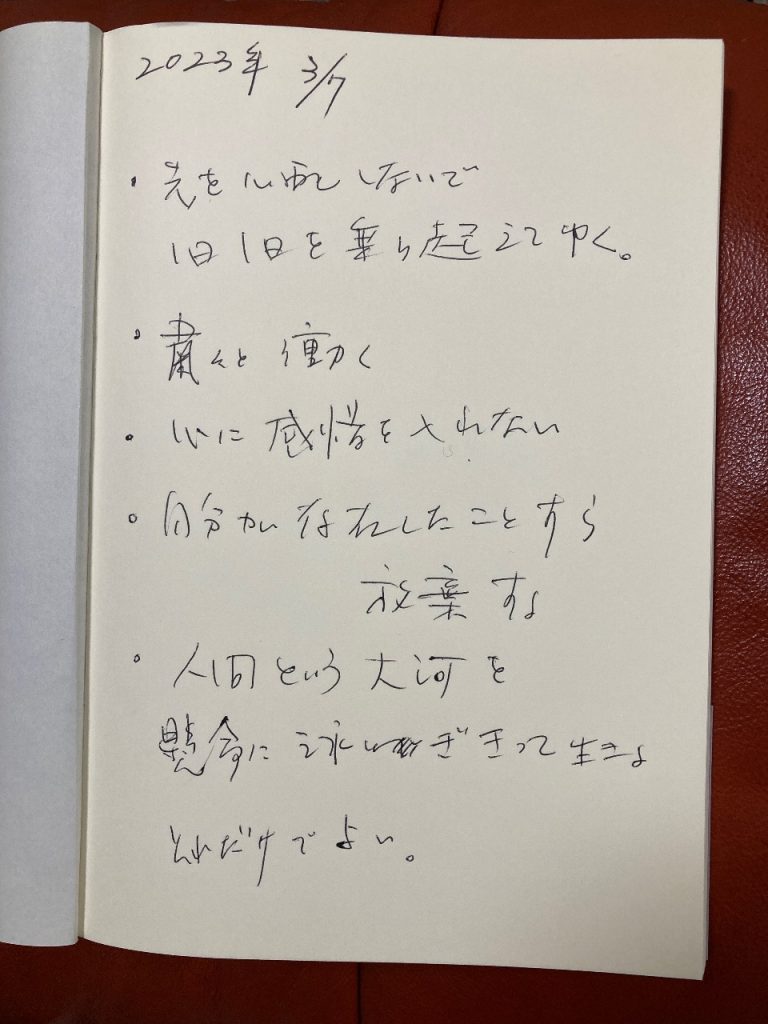 2023年 3/7
・先を心配しないで
1日1日を乗り越えてゆく。
・粛々と働く
・心に感情を入れない
・自分が存在したことすら
放棄する
・人間という大河を
懸命に泳ぎきって生きる
それだけでよい。